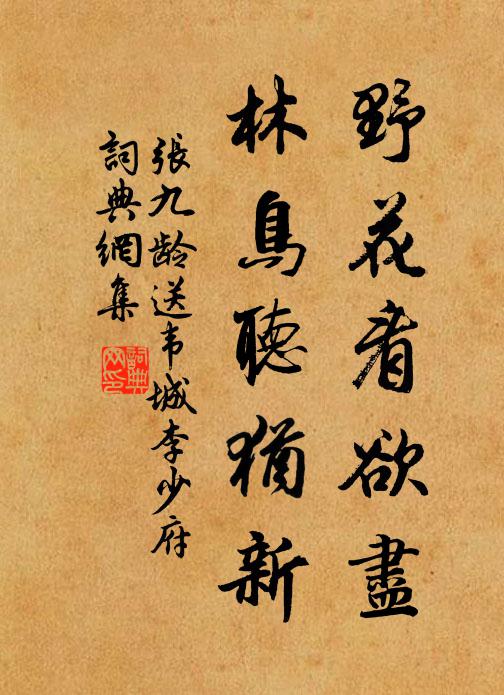 野花看欲盡
林鳥聽猶新
張九龄送韦城李少府
詞典網集
詞典網印